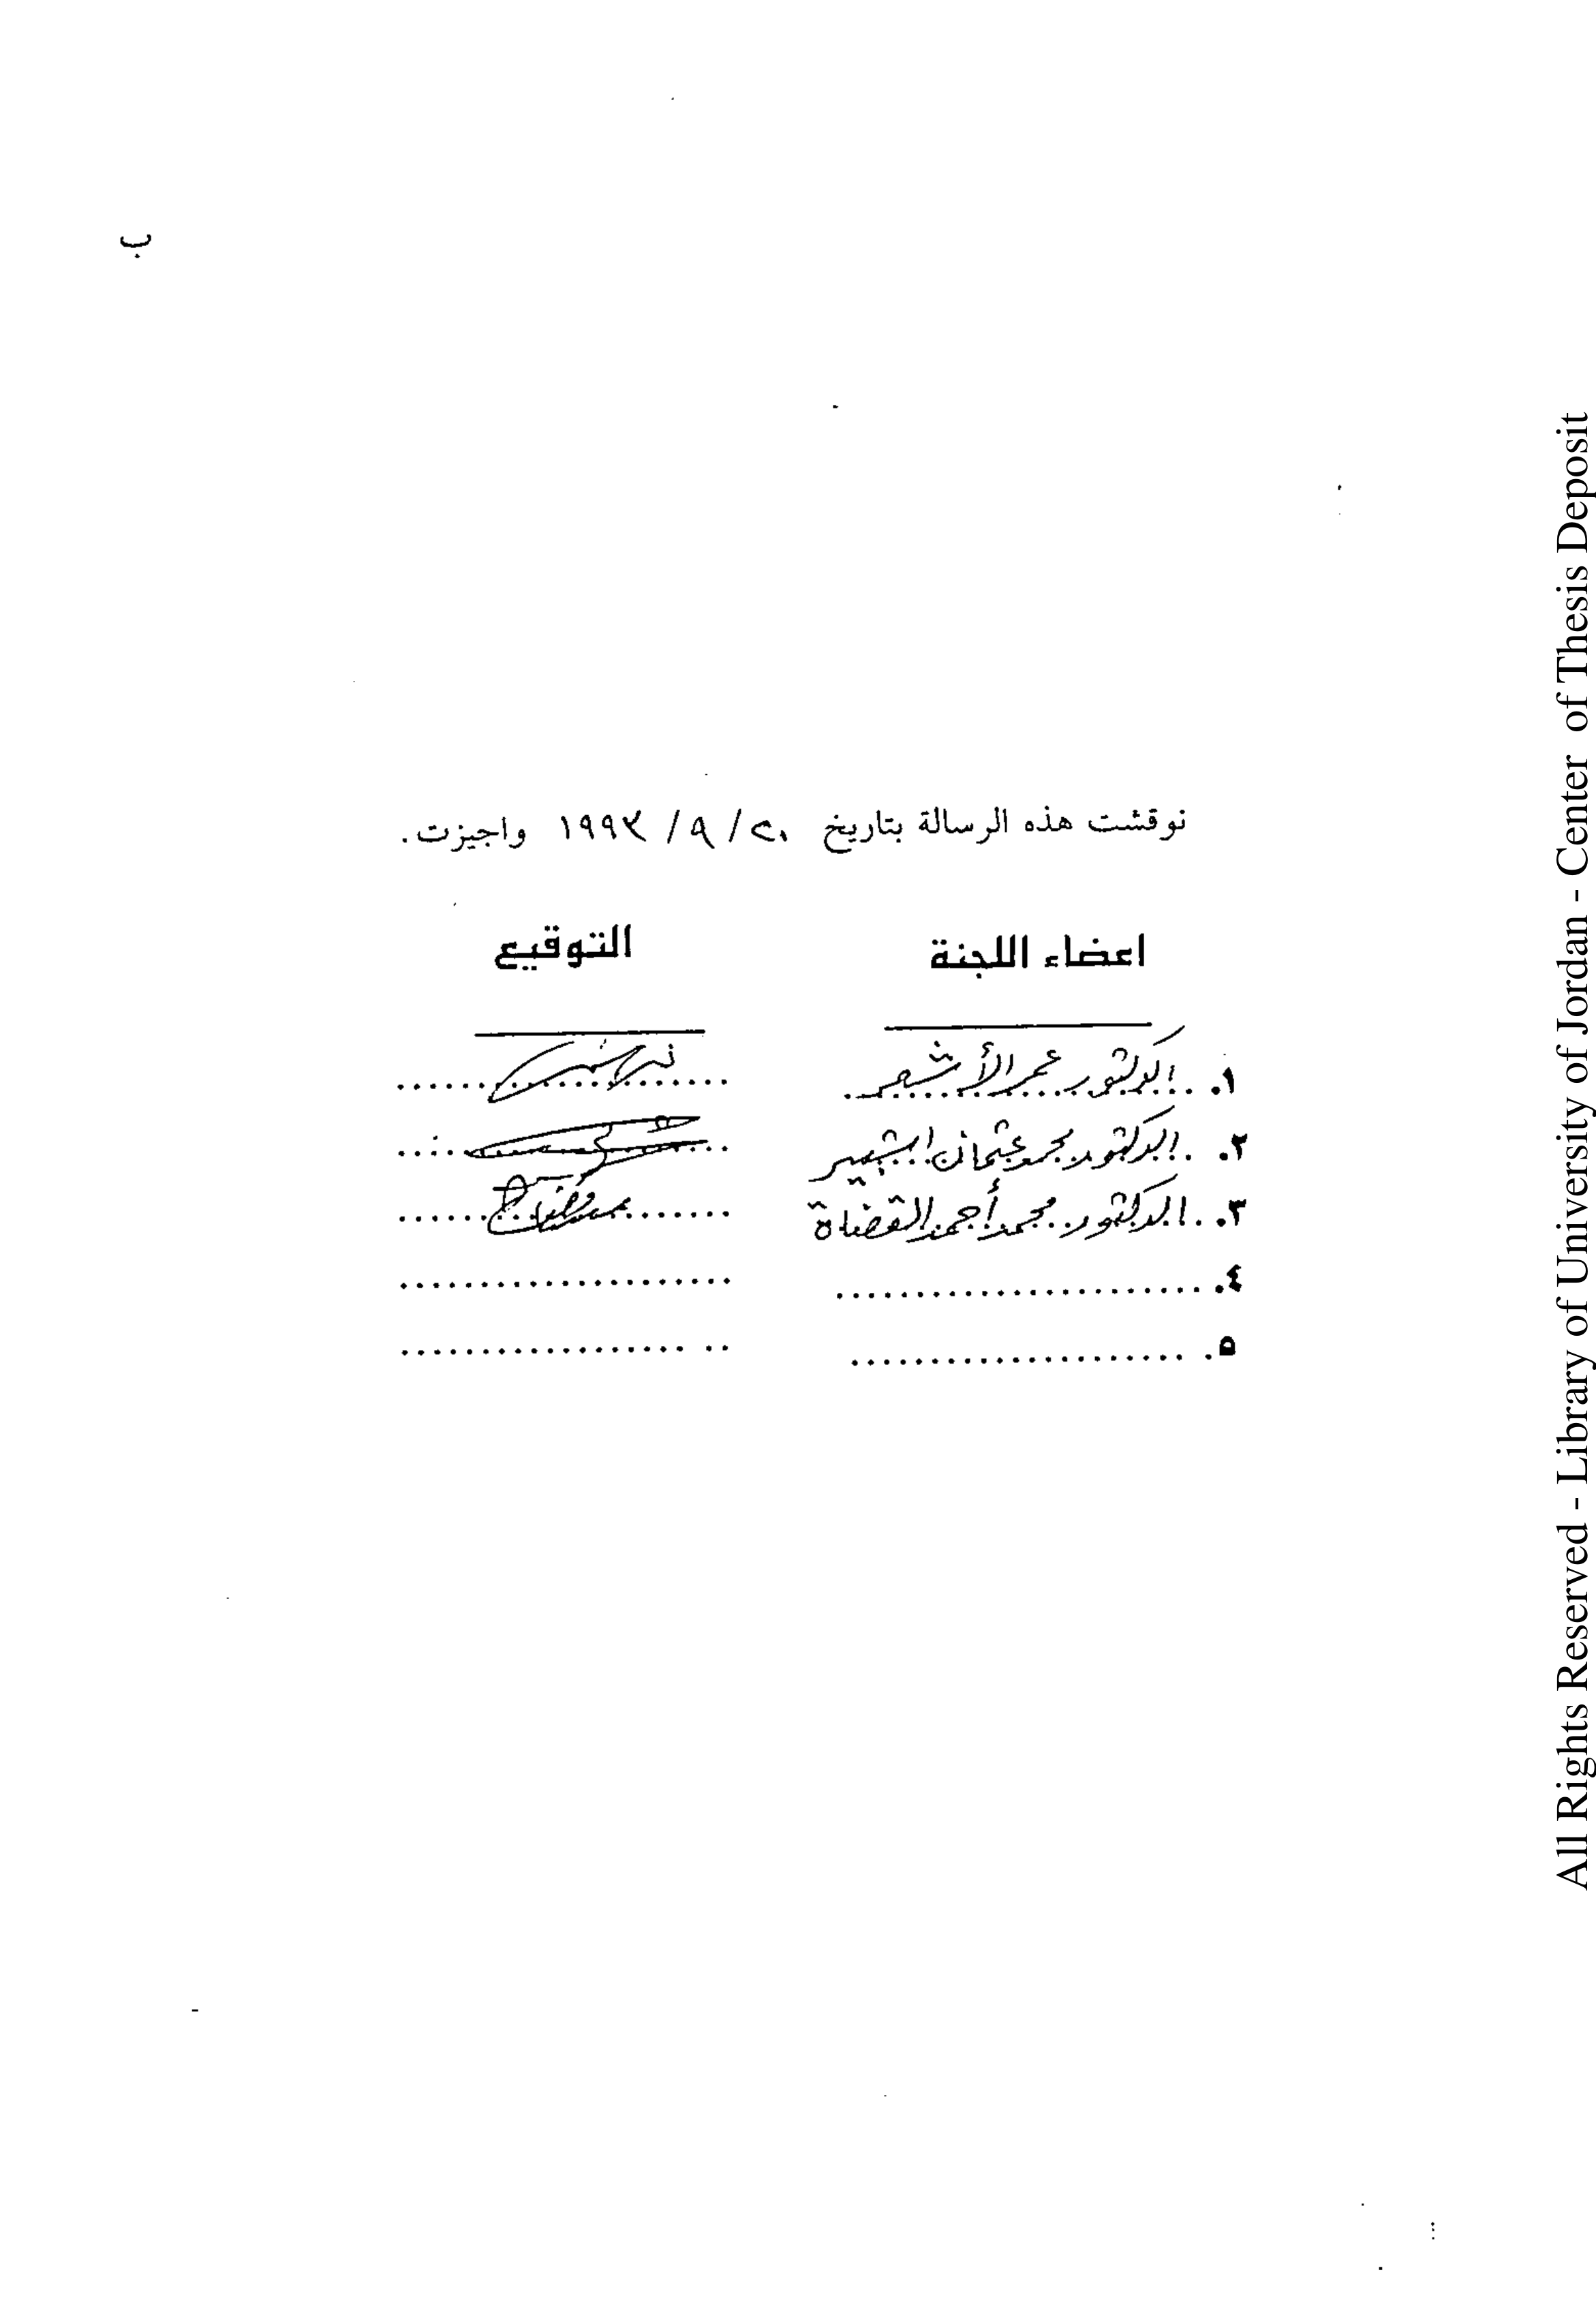 ب
نوقشت هذه الرسالة بتاريخ ٢٠/ ٩/ ١٩٩٣ واجيزت.
اعضاء اللجنة التوقيع
١. الدكتور عمر الأشقر
٢. الدكتور محمد عثمان شبير
٣. الدكتور محمد أحمد القضاة
٤.
٥.
All Rights Reserved - Library of University of Jordan - Center of Thesis Deposit